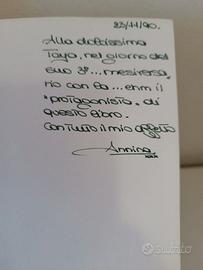 23/11/90.
Alla dolcissima
Taya, nel giorno del
suo 3°... mesiversa
rio con la... ehm il
"protagonista" di
questo libro.
Con tutto il mio affetto
Annina
subito.it